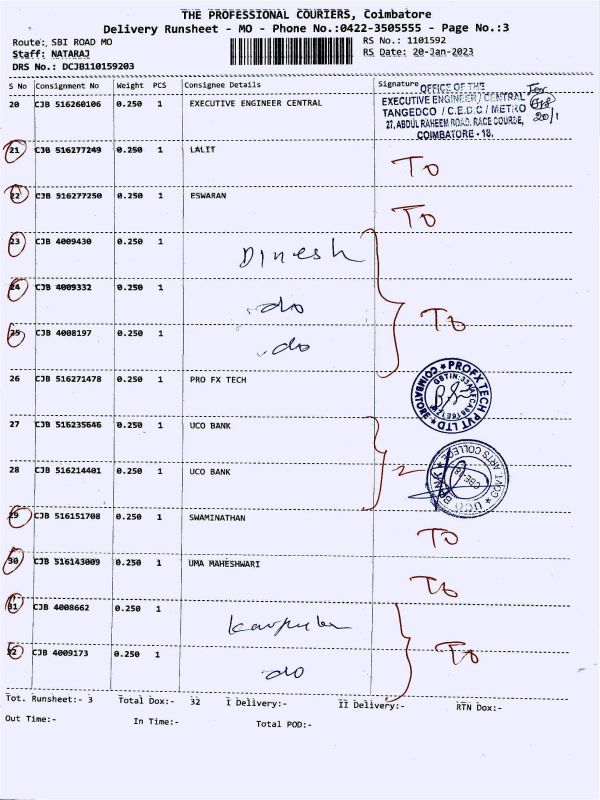 THE PROFESSIONAL COURIERS, Coimbatore
Delivery Runsheet - MO - Phone No.:0422-3505555 - Page No.:3
Route: SBI ROAD MO
RS No.: 1101592
Staff: NATARAJ
RS Date: 20-Jan-2023
DRS No.: DCJB110159203
S No Consignment No Weight PCS Consignee Details Signature
20 CJB 516260106 0.250 1 EXECUTIVE ENGINEER CENTRAL
OFFICE OF THE
EXECUTIVE ENGINEER / CENTRAL
TANGEDCO / C.E.D.C / METRO
27, ABDUL RAHEEM ROAD, RACE COURSE,
COIMBATORE - 18.
For
20/1
21 CJB 516277249 0.250 1 LALIT TO
22 CJB 516277250 0.250 1 ESWARAN TO
23 CJB 4009430 0.250 1 Dinesh
24 CJB 4009332 0.250 1 do TO
25 CJB 4008197 0.250 1 do
26 CJB 516271478 0.250 1 PRO FX TECH
PROFX TECH PVT LTD COIMBATORE
27 CJB 516235646 0.250 1 UCO BANK
28 CJB 516214401 0.250 1 UCO BANK 2
UCO BANK GOVT ARTS COLLEGE CBE-18
29 CJB 516151708 0.250 1 SWAMINATHAN TO
30 CJB 516143009 0.250 1 UMA MAHESHWARI TO
31 CJB 4008662 0.250 1
32 CJB 4009173 0.250 1 do TO
Tot. Runsheet:- 3 Total Dox:- 32 I Delivery:- II Delivery:- RTN Dox:-
Out Time:- In Time:- Total POD:-